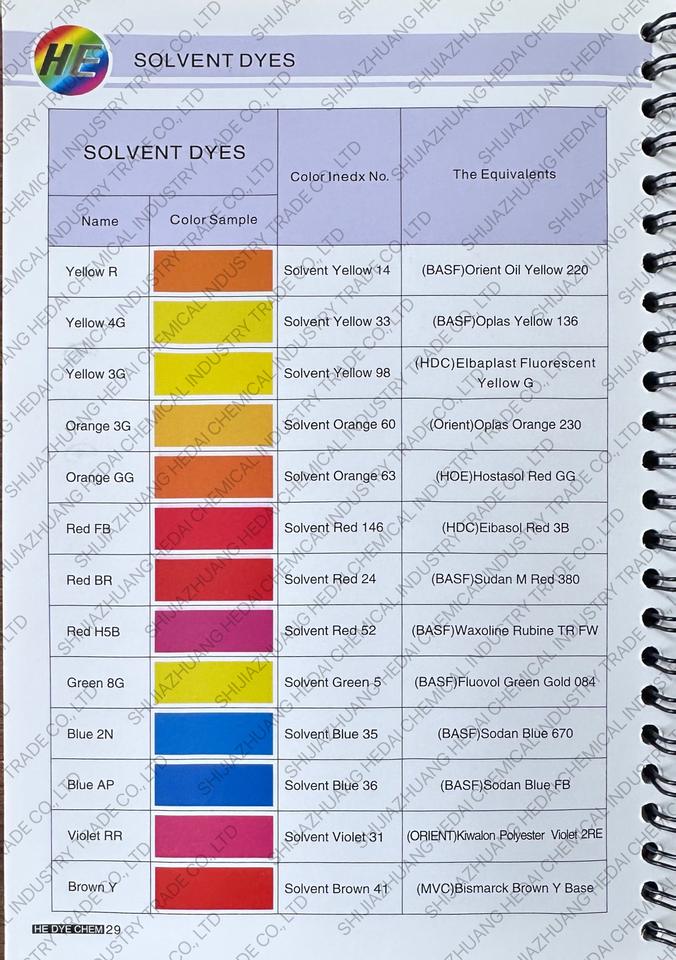 HE
SOLVENT DYES
SOLVENT DYES
Color Inedx No.
The Equivalents
Name
Color Sample
Yellow R
Solvent Yellow 14
(BASF)Orient Oil Yellow 220
Yellow 4G
Solvent Yellow 33
(BASF)Oplas Yellow 136
Yellow 3G
Solvent Yellow 98
(HDC)Elbaplast Fluorescent
Yellow G
Orange 3G
Solvent Orange 60
(Orient)Oplas Orange 230
Orange GG
Solvent Orange 63
(HOE)Hostasol Red GG
Red FB
Solvent Red 146
(HDC)Eibasol Red 3B
Red BR
Solvent Red 24
(BASF)Sudan M Red 380
Red H5B
Solvent Red 52
(BASF)Waxoline Rubine TR FW
Green 8G
Solvent Green 5
(BASF)Fluovol Green Gold 084
Blue 2N
Solvent Blue 35
(BASF)Sodan Blue 670
Blue AP
Solvent Blue 36
(BASF)Sodan Blue FB
Violet RR
Solvent Violet 31
(ORIENT)Kiwalon Polyester Violet 2RE
Brown Y
Solvent Brown 41
(MVC)Bismarck Brown Y Base
HE DYE CHEM 29
SHIJIAZHUANG HEDAI CHEMICAL INDUSTRY TRADE CO., LTD